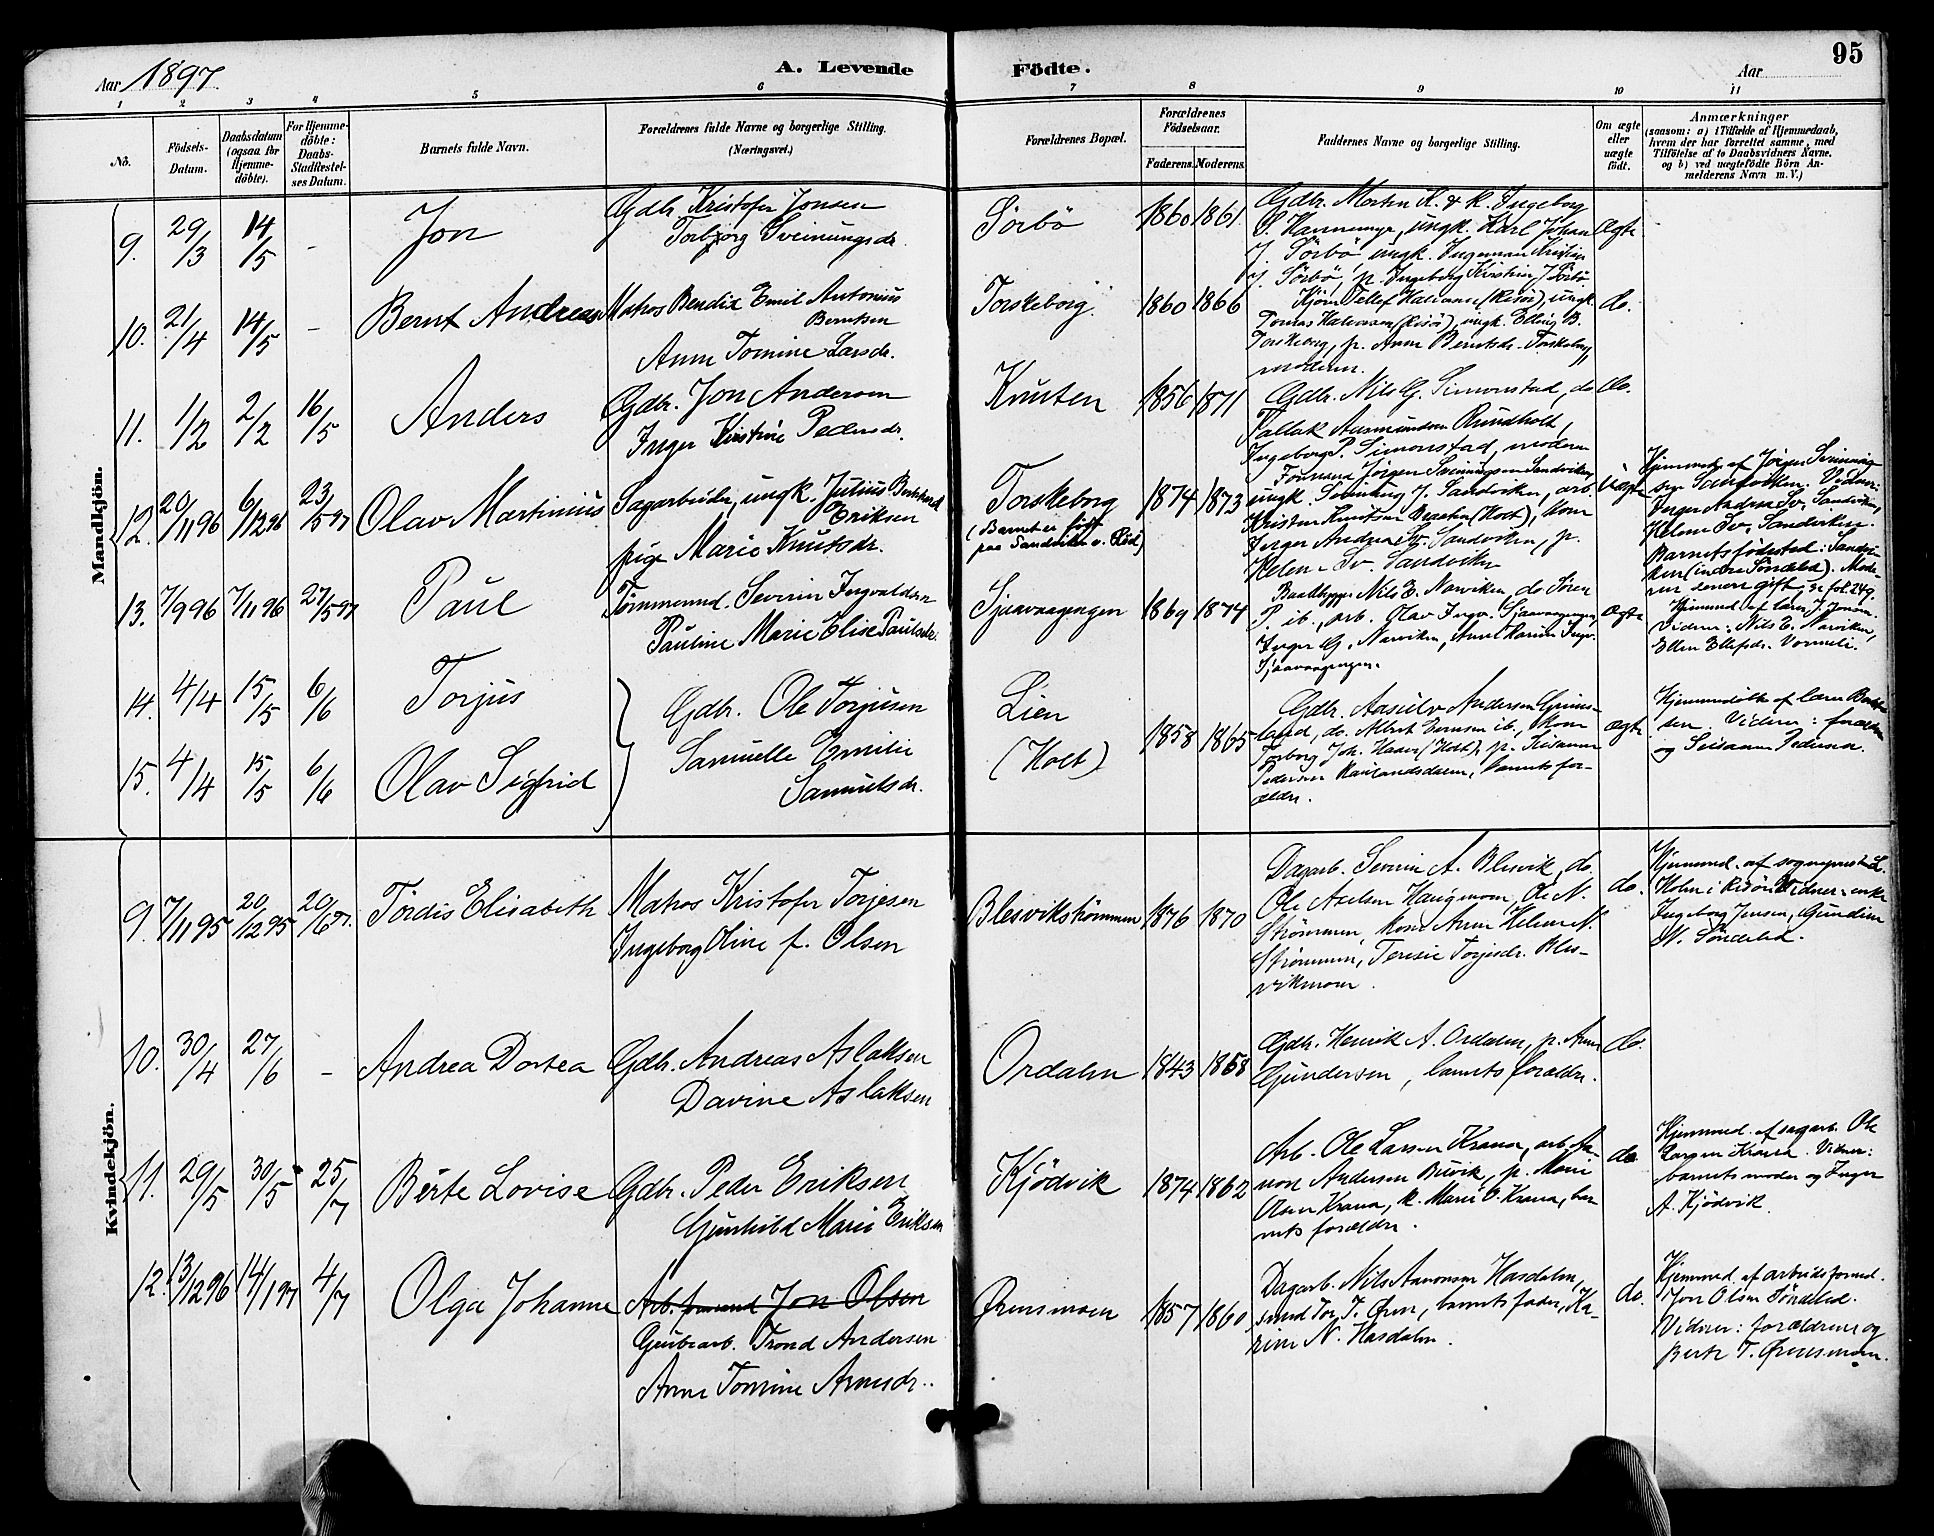 95
Aar 1897
A. Levende Födte.
Aar
1 2 3 4 5 6 7 8 9 10 11
No.
Födsels-Datum.
Daabsdatum (ogsaa for Hjemmedöbte).
For Hjemmedöbte: Daabs-Stadfæstelses Datum.
Barnets fulde Navn.
Forældrenes fulde Navne og borgerlige Stilling.
(Næringsvei.)
Forældrenes Bopæl.
Forældrenes Födselsaar.
Faderens. Moderens.
Faddernes Navne og borgerlige Stilling.
Om ægte eller uægte födt.
Anmærkninger
(saasom: a) i Tilfælde af Hjemmedaab, hvem der har forrettet samme, med Tilföielse af to Daabsvidners Navne, og b) ved uægtefödte Börn Anmelderens Navn m. V.)
Mandkjön.
9. 29/3 14/5 - Jon
Gdbr. Kristofer Jonsen
Torbjørg Sveinungsdr.
Sörbö 1860 1861
Gdbr. Morten K. & k. Ingeborg
S. Hammemyr, ungk. Karl Johan
J. Sörbö, ungk. Ingeman Kristian
J. Sörbö, p. Ingeborg Kirstine J. Sörbö
ægte
10. 21/4 14/5 - Bernt Andreas
Matros Bendix Emil Antonius
Berntsen
Anne Tomine Larsdr.
Torskeborg 1860 1866
Tellef Halvorsen (Risör), ungk.
Tomas Halvorsen (Risör), ungk. Elling B.
Torskeborg, p. Anne Berntsdr. Torskeborg,
moderen.
do.
11. 1/2 2/2 16/5 Anders
Gdbr. Jon Andersen
Inger Kirstine Pedersdr.
Knuten 1856 1871
Gdbr. Nils G. Simonstad, do
Tallak Aasmundsen Rundholt,
Ingeborg P. Simonstad, moderen
do.
12. 20/11 96 6/12 96 23/5 97 Olav Martinius
Sagarbeider, ungk. Julius Bernhard
Eriksen
pige Marie Knutsdr.
Torskeborg
(Barnet er födt
paa Sandviken v. Röd)
1874 1873
Jörgen Sveinungsen Sandviken,
ungk. Sveinung J. Sandviken, arb.
Kristen Knutsen (Holt), kone
Inger Andrea Sv. Sandviken, p.
Helene Sv. Sandviken
Uægte
Hjemmed. af Jörgen Sveinungsen Sandviken. Vidner:
Inger Andrea Sv. Sandviken,
Helene Sv. Sandviken.
Barnets födested: Sandviken (indre Söndeled). Moderen senere gift, se fol. 249.
13. 7/9 96 7/11 96 27/5 97 Paul
Tömmermd. Severin Ingvaldsen
Pauline Marie Elise Paulsdr.
Sjuavaagengen 1869 1874
Baadbygger Nils E. Narviken, do Sören
P. ib., arb. Olav Ingv. Sjaavaagengen,
Inger G. Narviken, Anne Karine Ingv.
Sjaavaagengen.
ægte
Hjemmed. af lærer J. Jonsen.
Vidner: Nils E. Narviken,
Ellen Ellefsdr. Vormeli.
14. 4/4 15/5 6/6 Torjus
15. 4/4 15/5 6/6 Olav Sigfrid
Gdbr. Ole Torjusen
Samuelle Emilie
Samuelsdr.
Lien
(Holt)
1858 1865
Gdbr. Aasulv Andersen Grimsland, do. Albert Evensen ib., kone
Torborg Joh. Haaver (Holt), p. Susanne
Pedersen Kaulandsdalen, barnets forældre.
ægte
Hjemmedöbt af lærer
Vidner: forældrene
og Susanne Pedersen.
Kvindekjön.
9. 7/11 95 20/12 95 20/6 97. Tordis Elisabeth
Matros Kristofer Torjesen
Ingeborg Oline f. Olsen
Blesvikströmmen 1876 1870
Dagarb. Severin A. Blesvik, do.
Ole Axelsen Haugmoen, Ole N.
Strömmen, kone Anne Helene N.
Strömmen, Teresie Torjesdr. Blesvikmoen.
do.
Hjemmed. af sogneprest L.
Holm i Risör. Vidner: enke
Ingeborg Jensen, Gundine
N. Söndeled.
10. 30/4 27/6 - Andrea Dortea
Gdbr. Andreas Aslaksen
Davine Aslaksen
Ordalen 1843 1858
Gdbr. Henrik A. Ordalen, p. Anne
Gundersen, barnets forældre.
do.
11. 29/5 30/5 25/7 Berte Lovise
Gdbr. Peder Eriksen
Gunhild Marie Eriksen
Kjödvik 1874 1862
Arb. Ole Larsen Krana, arb. Aanon Andersen Buvik, p. Marie
Olsen Krana, k. Marie O. Krana, barnets forældre.
do
Hjemmed. af sagarb. Ole
Larsen Krana. Vidner:
barnets moder og Inger
A. Kjödvik.
12. 13/12 96 14/1 97 4/7 Olga Johanne
Arb. formand Jon Olsen
Grubearb. Trond Andersen
Anne Tomine Arnesdr.
Ørensmoen 1857 1860
Dagarb. Nils Aanonsen Hasdalen,
smed Tor T. Øren, barnets fader, Karine N. Hasdalen.
do.
Hjemmed. af arbeidsformd.
Jon Olsen Söndeled.
Vidner: forældrene og
Berte T. Ørensmoen.